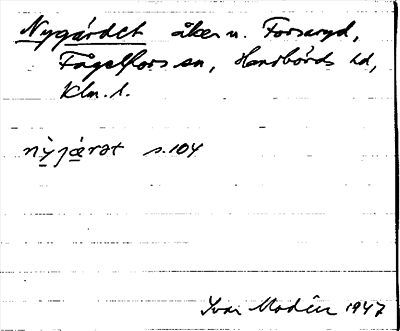 Nygärdet åker u. Forsaryd,
Fågelfors sn, Handbörds hd,
Klm. l.
nỳjæ̀rət s. 104
Ivar Modéer 1947